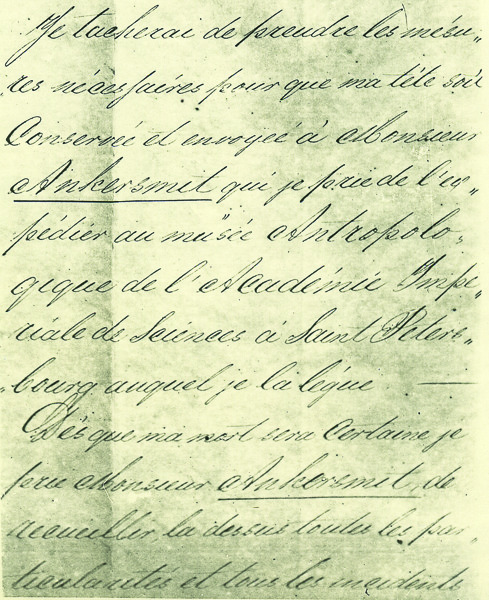 Je tacherai de prendre les mésu„
„res nécessaires pour que ma tête soit
Conservée et envoyée à Monsieur
Ankersmit qui je prie de l'ex„
pédier au musée Antropolo„
gique de l'Académie Impe„
riale de Sciences à Saint Péters„
„bourg auquel je la légue. —
Dès que ma mort sera Certaine je
prie Monsieur Ankersmit, de
recueillir la dessus toutes les par„
ticularites et tous les incidents